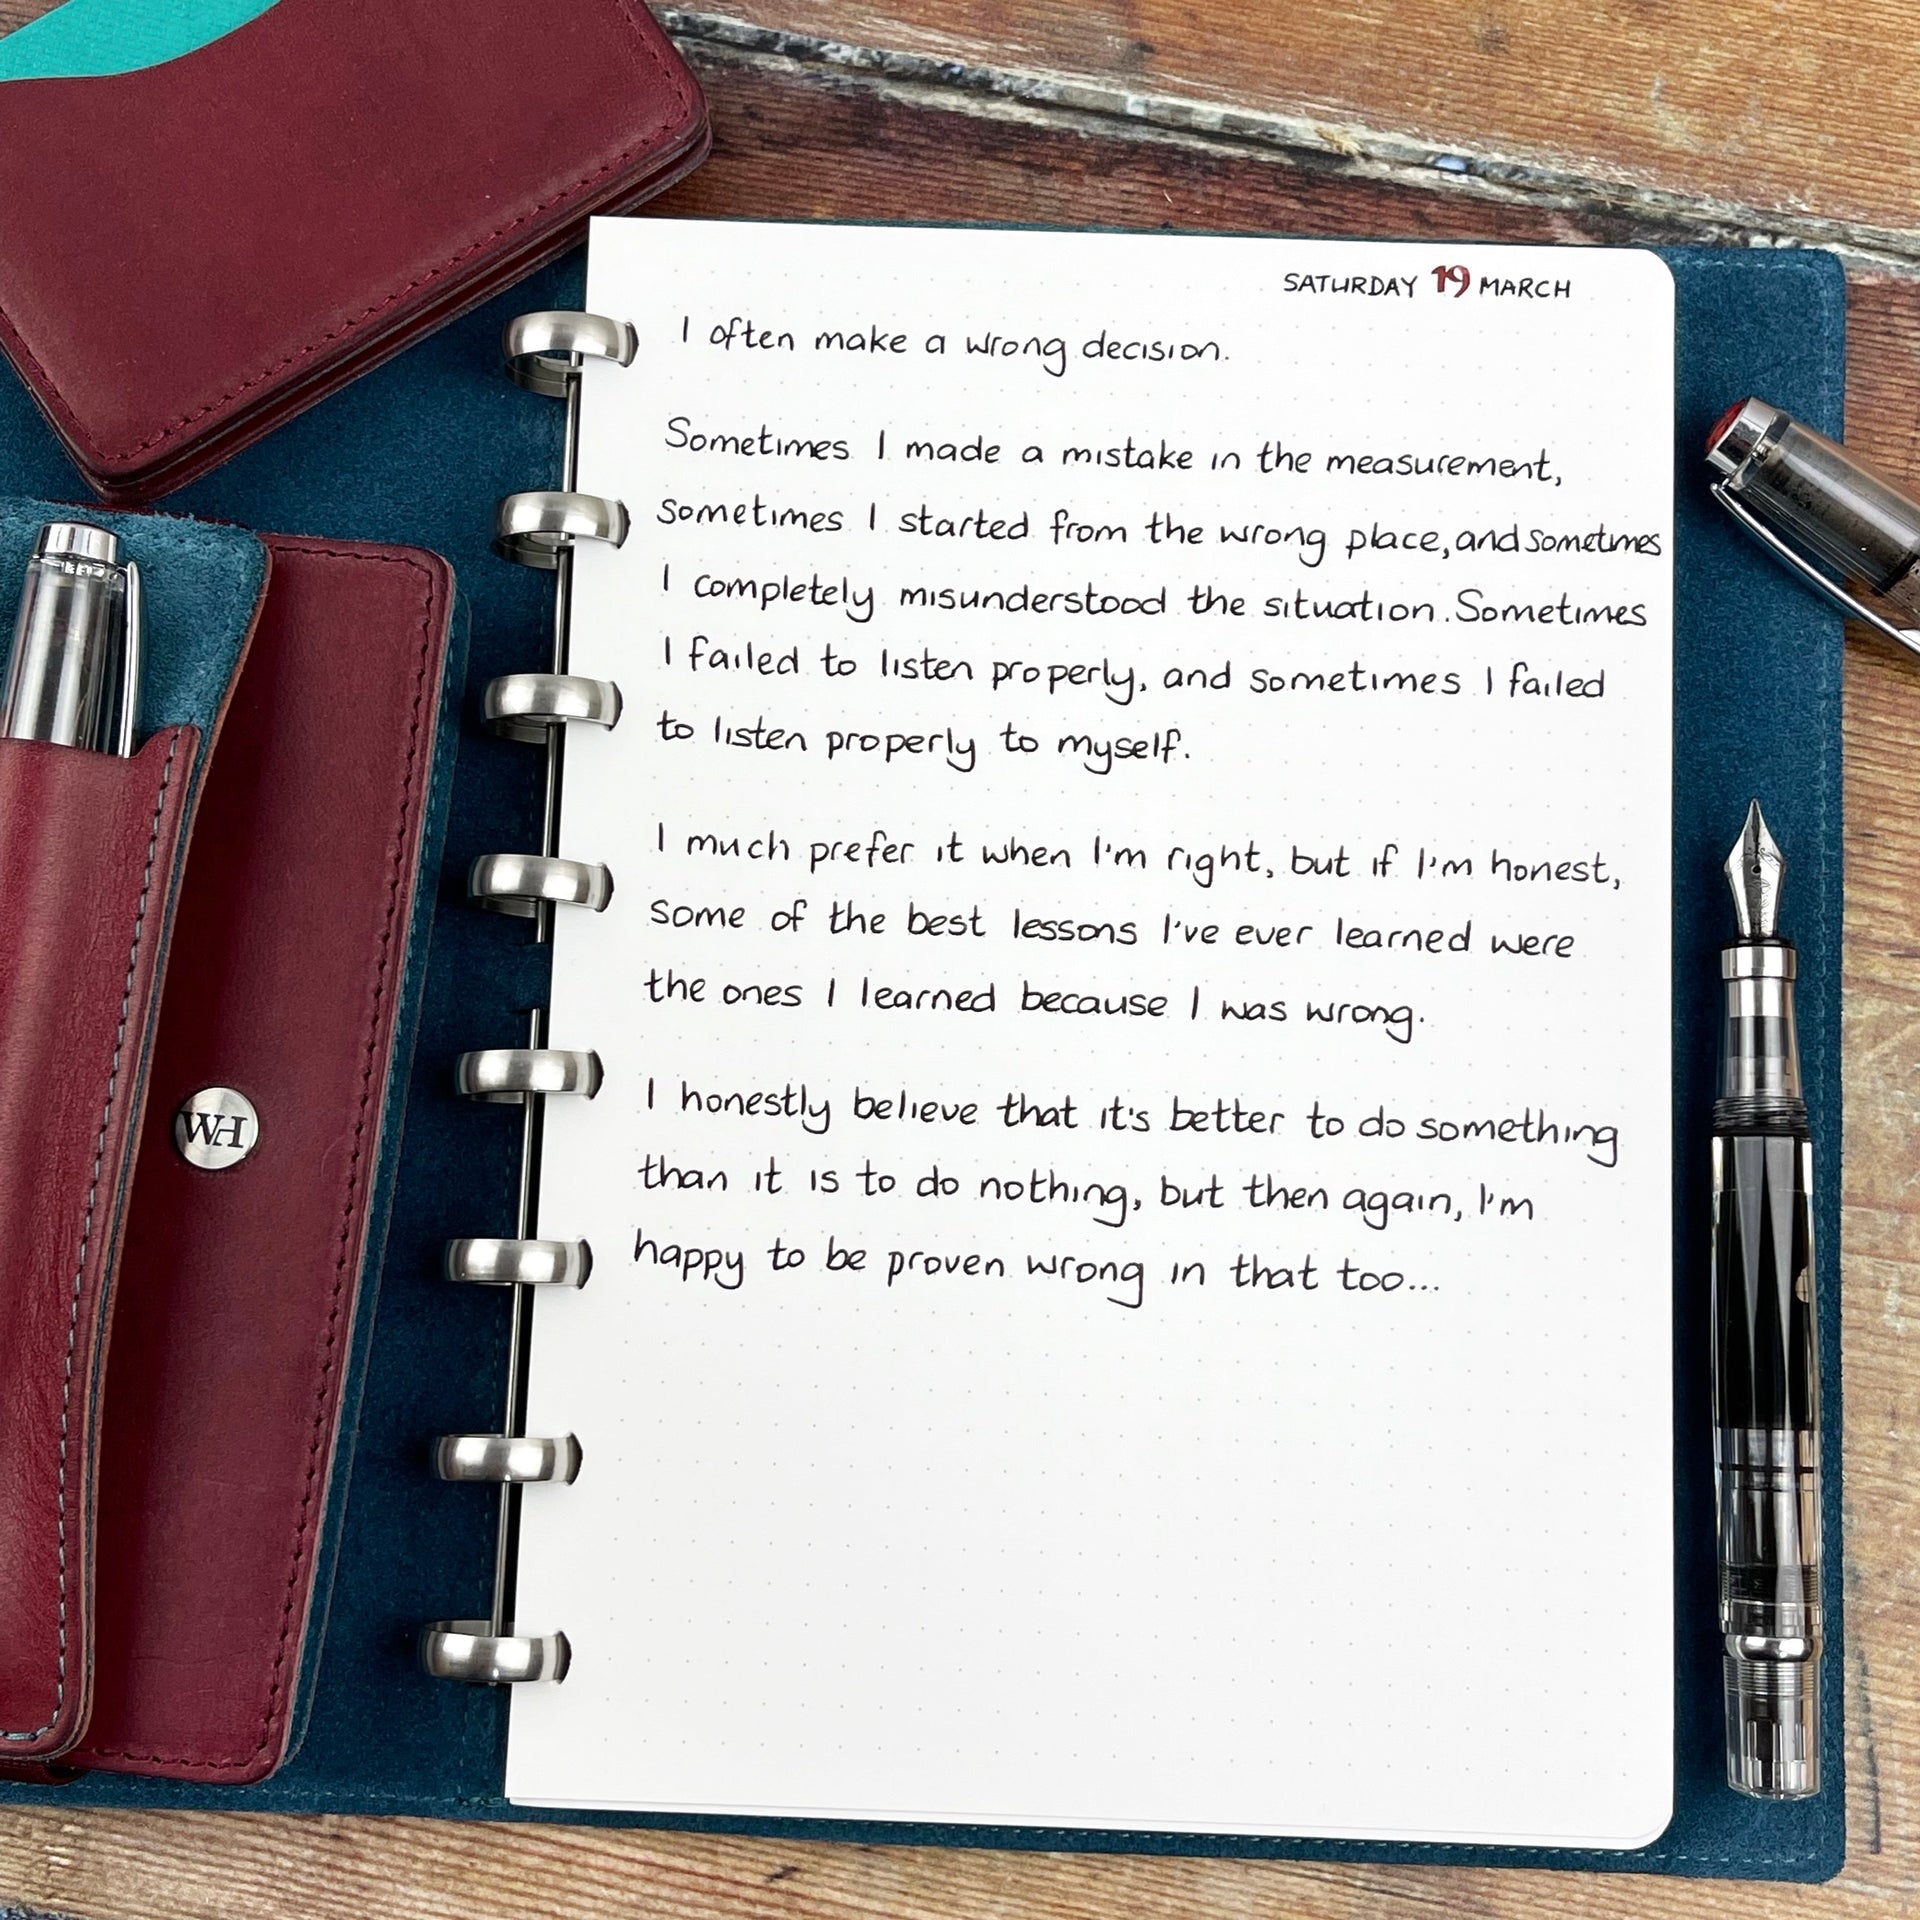 SATURDAY 19 MARCH
I often make a wrong decision.
Sometimes I made a mistake in the measurement,
sometimes I started from the wrong place, and sometimes
I completely misunderstood the situation. Sometimes
I failed to listen properly, and sometimes I failed
to listen properly to myself.
I much prefer it when I'm right, but if I'm honest,
some of the best lessons I've ever learned were
the ones I learned because I was wrong.
I honestly believe that it's better to do something
than it is to do nothing, but then again, I'm
happy to be proven wrong in that too...
WH